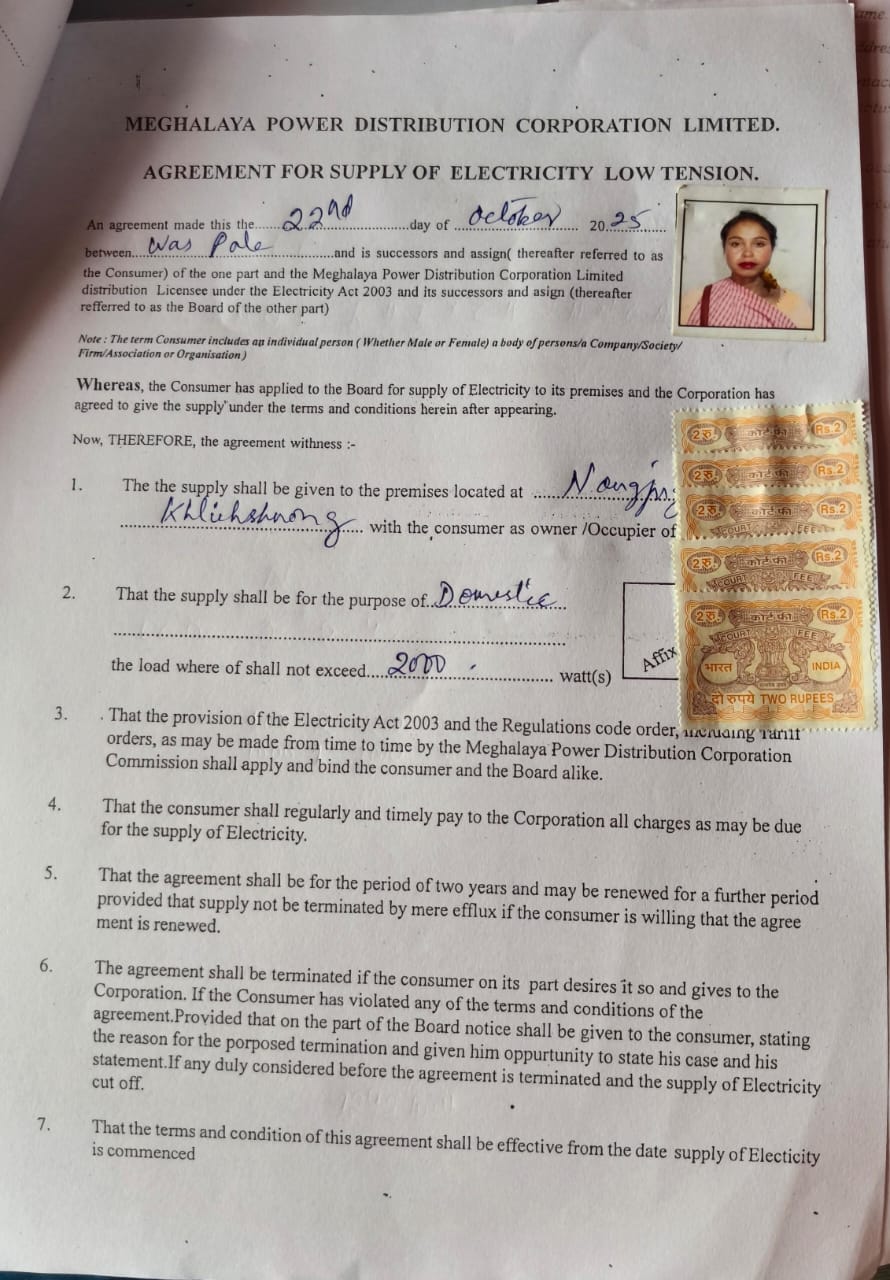 MEGHALAYA POWER DISTRIBUTION CORPORATION LIMITED.
AGREEMENT FOR SUPPLY OF ELECTRICITY LOW TENSION.
An agreement made this the......22nd......day of October 2025
between...Was Pale............and is successors and assign( thereafter referred to as
the Consumer) of the one part and the Meghalaya Power Distribution Corporation Limited
distribution Licensee under the Electricity Act 2003 and its successors and asign (thereafter
refferred to as the Board of the other part)
Note : The term Consumer includes an individual person ( Whether Male or Female) a body of persons/a Company/Society/
Firm/Association or Organisation )
Whereas, the Consumer has applied to the Board for supply of Electricity to its premises and the Corporation has
agreed to give the supply under the terms and conditions herein after appearing.
Now, THEREFORE, the agreement withness :-
1. The the supply shall be given to the premises located at ......
............ with the consumer as owner /Occupier of
2. That the supply shall be for the purpose of..Domestic
the load where of shall not exceed.....2000............ watt(s)
Affix
2 रु. कोर्ट फी Rs.2
2 रु. कोर्ट फी Rs.2
2 रु. कोर्ट फी Rs.2
COURT FEE
2 रु. कोर्ट फी Rs.2
COURT FEE
2 रु. कोर्ट फी Rs.2
COURT FEE
भारत INDIA
दो रुपये TWO RUPEES
3. That the provision of the Electricity Act 2003 and the Regulations code order, including Tariff
orders, as may be made from time to time by the Meghalaya Power Distribution Corporation
Commission shall apply and bind the consumer and the Board alike.
4. That the consumer shall regularly and timely pay to the Corporation all charges as may be due
for the supply of Electricity.
5. That the agreement shall be for the period of two years and may be renewed for a further period
provided that supply not be terminated by mere efflux if the consumer is willing that the agree
ment is renewed.
6. The agreement shall be terminated if the consumer on its part desires it so and gives to the
Corporation. If the Consumer has violated any of the terms and conditions of the
agreement.Provided that on the part of the Board notice shall be given to the consumer, stating
the reason for the porposed termination and given him oppurtunity to state his case and his
statement.If any duly considered before the agreement is terminated and the supply of Electricity
cut off.
7. That the terms and condition of this agreement shall be effective from the date supply of Electicity
is commenced